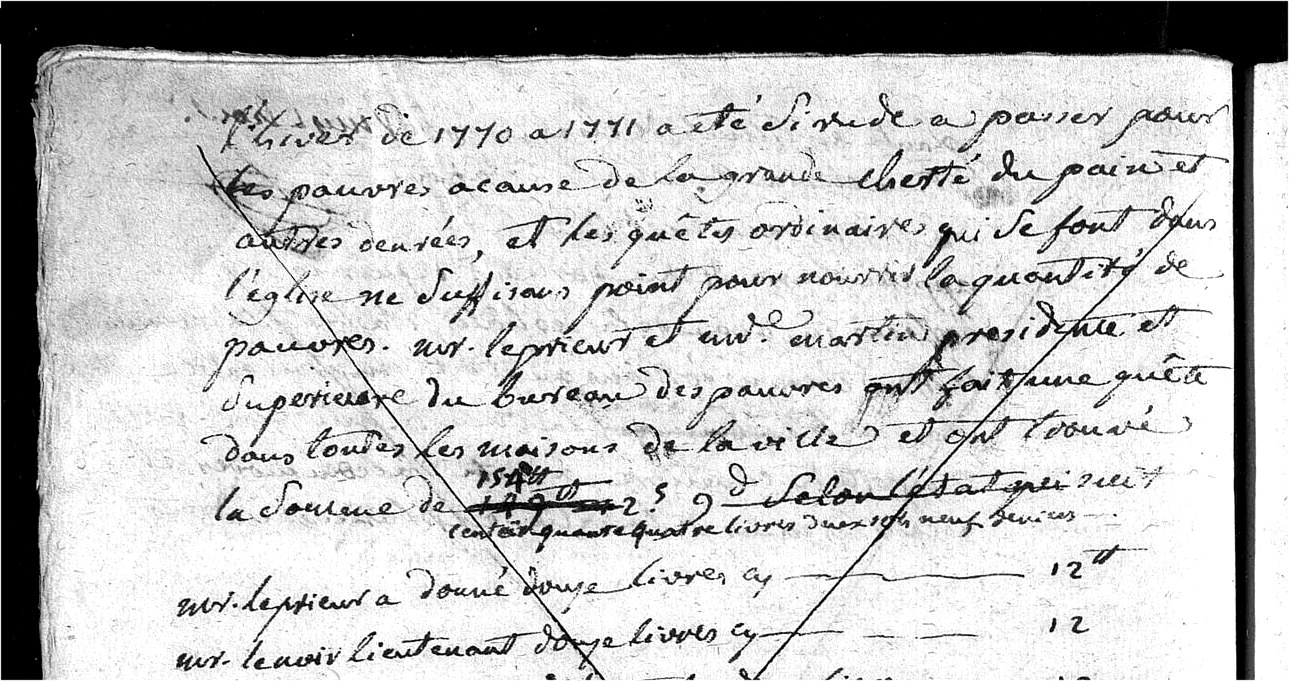 l'hiver de 1770 a 1771 a eté si rude a passer pour
les pauvres acause de la grande cherté du pain et
autres denrées, et les quêtes ordinaires qui se font dans
l'église ne suffisans point pour nourrir la quantité de
pauvres. mr. leprieur et mde. martin presidente et
superieure du bureau des pauvres ont fait une quête
dans toutes les maisons de la ville et ont trouvé
154tt
la somme de 2s 9d selon l'état qui suit
cent cinquante quatre livres deux sols neuf deniers
mr. leprieur a donné douze livres cy 12tt
mr. lenoir lieutenant douze livres cy 12